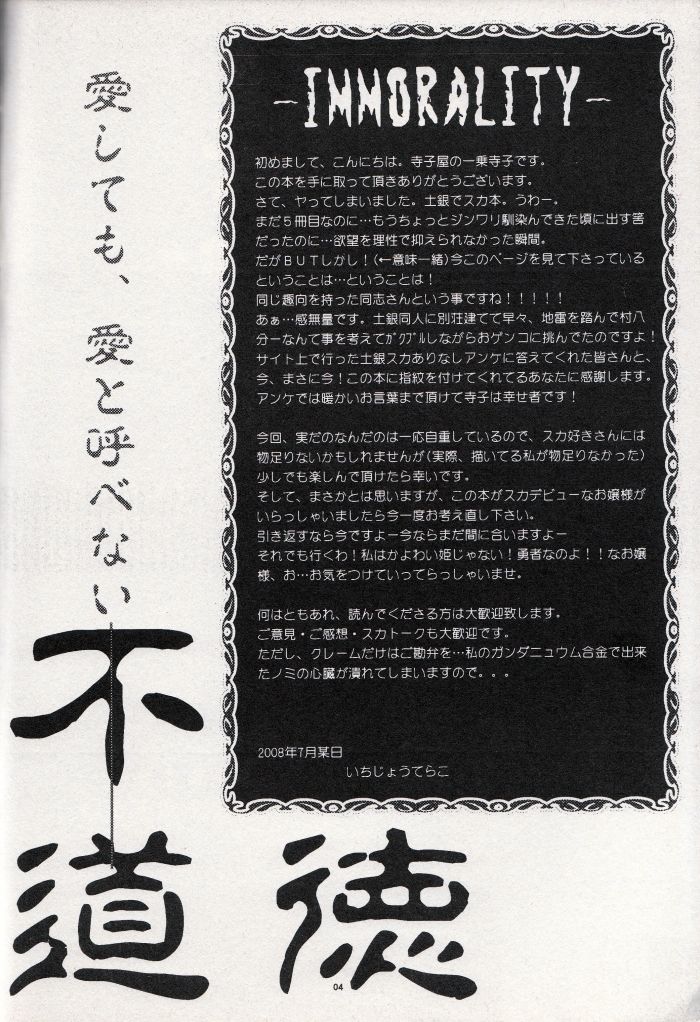 愛しても、愛と呼べない
不
道
徳
-IMMORALITY-
初めまして、こんにちは。寺子屋の一乗寺子です。
この本を手に取って頂きありがとうございます。
さて、ヤってしまいました。土銀でスカ本。うわー。
まだ5冊目なのに…もうちょっとジンワリ馴染んできた頃に出す筈
だったのに…欲望を理性で抑えられなかった瞬間。
だがBUTしかし!(←意味一緒)今このページを見て下さっている
ということは…ということは!
同じ趣向を持った同志さんという事ですね!!!!!
あぁ…感無量です。土銀同人に別荘建てて早々、地雷を踏んで村八
分ーなんて事を考えてガクブルしながらおゲンコに挑んでたのですよ!
サイト上で行った土銀スカありなしアンケに答えてくれた皆さんと、
今、まさに今!この本に指紋を付けてくれてるあなたに感謝します。
アンケでは暖かいお言葉まで頂けて寺子は幸せ者です!
今回、実だのなんだのは一応自重しているので、スカ好きさんには
物足りないかもしれませんが(実際、描いてる私が物足りなかった)
少しでも楽しんで頂けたら幸いです。
そして、まさかとは思いますが、この本がスカデビューなお嬢様が
いらっしゃいましたら今一度お考え直し下さい。
引き返すなら今ですよー今ならまだ間に合いますよー
それでも行くわ!私はかよわい姫じゃない!勇者なのよ!!なお嬢
様、お…お気をつけていってらっしゃいませ。
何はともあれ、読んでくださる方は大歓迎致します。
ご意見・ご感想・スカトークも大歓迎です。
ただし、クレームだけはご勘弁を…私のガンダニュウム合金で出来
たノミの心臓が潰れてしまいますので。。。
2008年7月某日
いちじょうてらこ
04